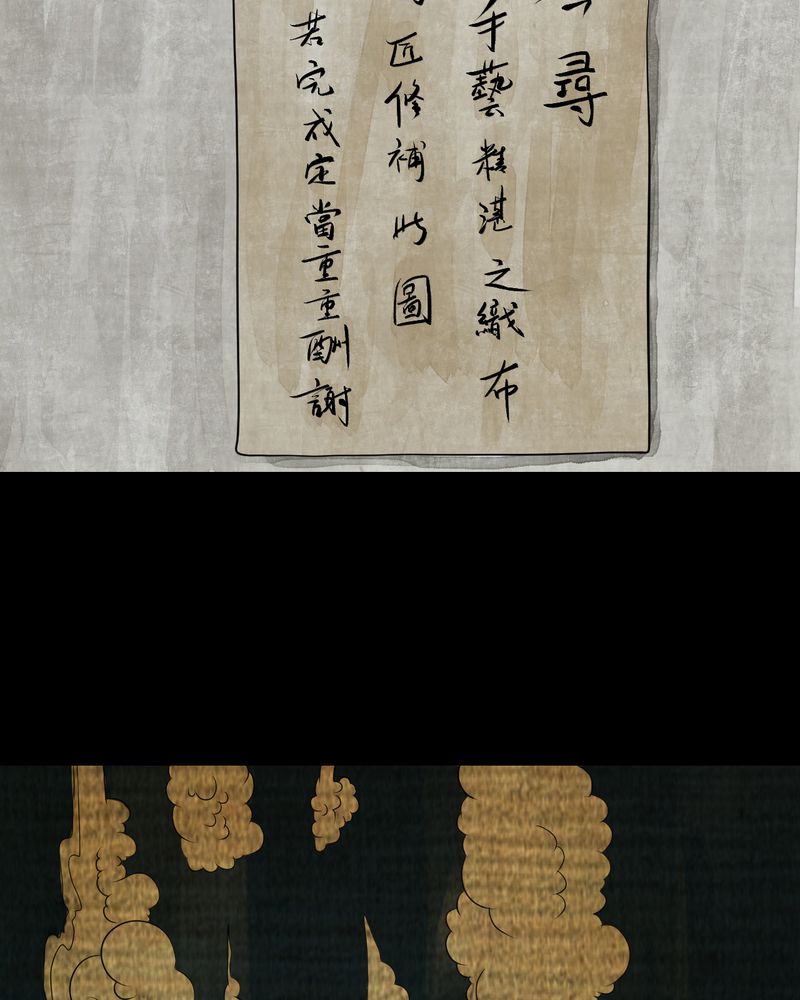 尋
手藝精湛之織布
匠修補此圖
若完成定當重重酬謝